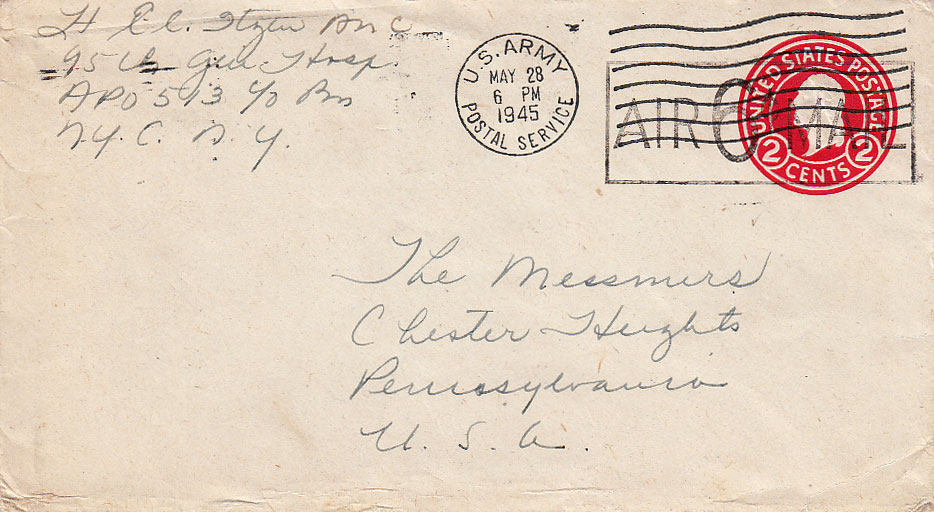 H El. Itzen ANC
95th Gen Hosp.
APO 513 c/o Pm
N.Y.C. N.Y.
U.S. ARMY
MAY 28
6 PM
1945
POSTAL SERVICE
AIR 6¢ MAIL
UNITED STATES POSTAGE
2 CENTS 2
The Messmers
Chester Heights
Pennsylvania
U. S. A.